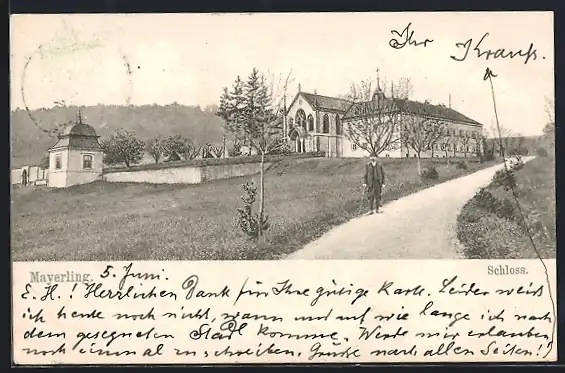 Ihr Krauß.
Mayerling. 5. Juni.
Schloss.
E. H.! Herzlichen Dank für Ihre gütige Karte. Leider weiß
ich heute noch nicht, wann und auf wie lange ich nach
dem gesegneten Stadl komme. Werde mir erlauben
noch einmal zu schreiben. Grüße nach allen Seiten!!